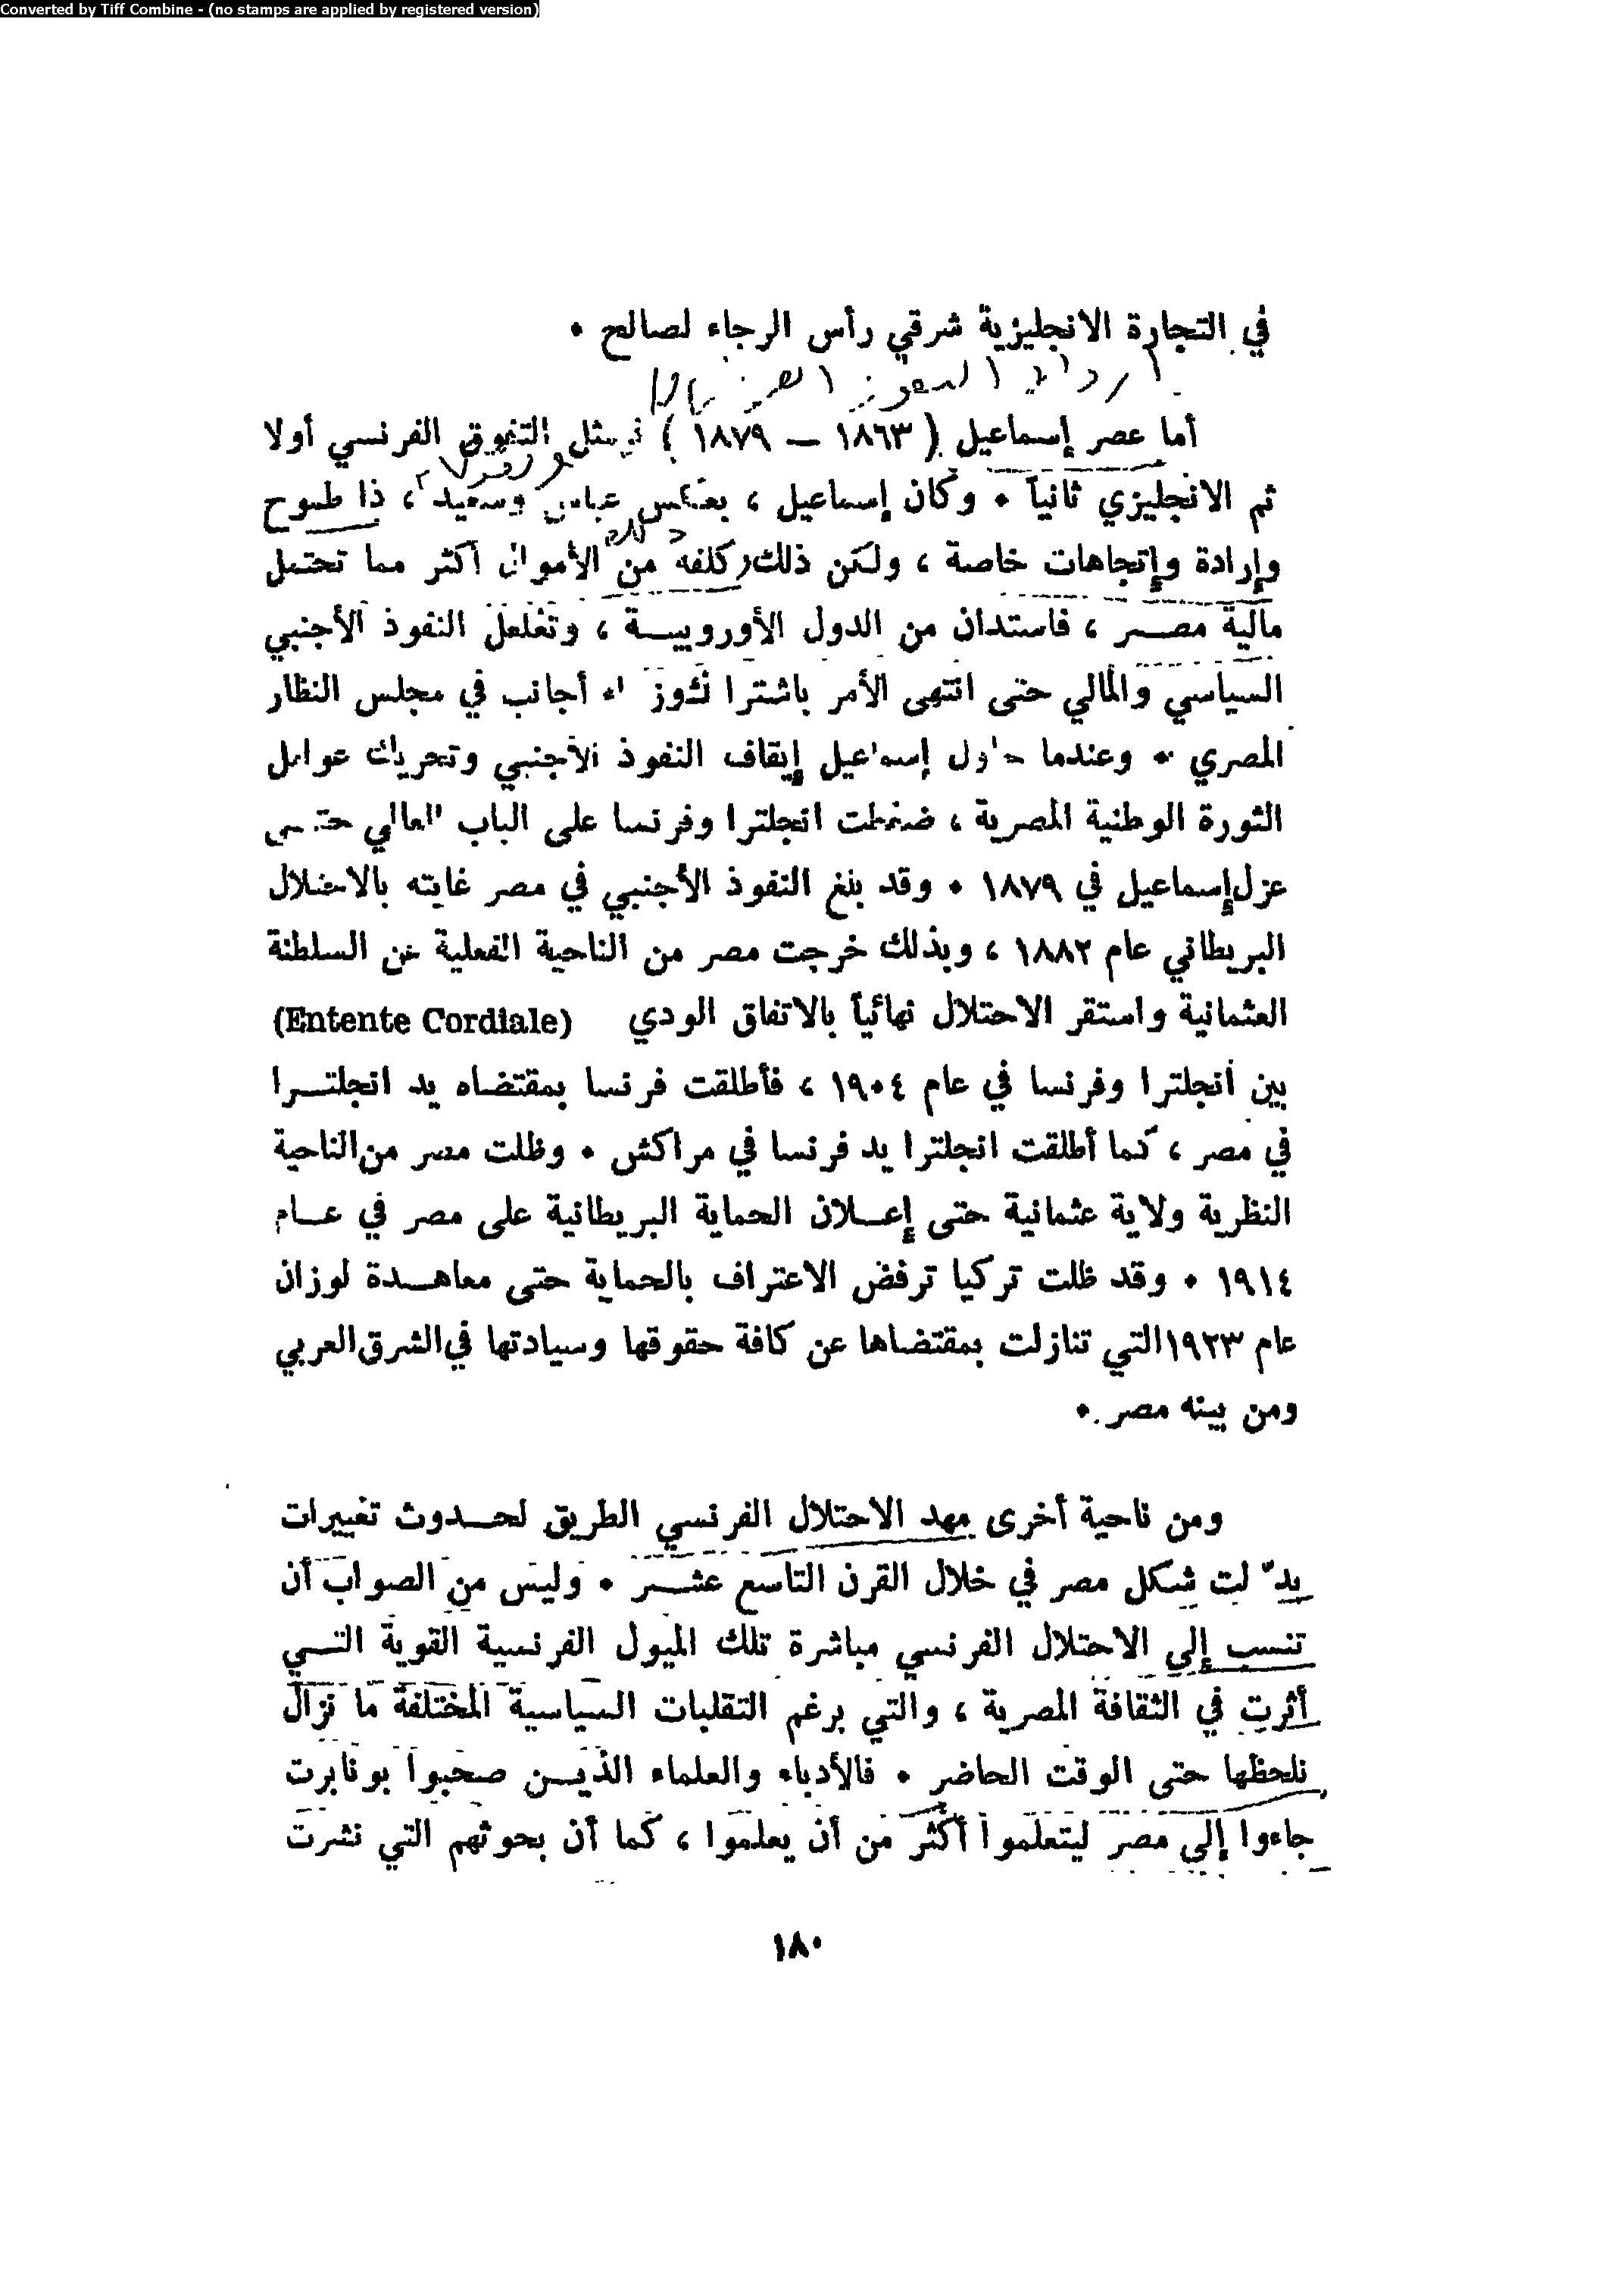 Converted by Tiff Combine - (no stamps are applied by registered version)
في التجارة الانجليزية شرقي رأس الرجاء لصالح .
أما عصر إسماعيل ( ١٨٦٣ — ١٨٧٩ ) فيمثل التفوق الفرنسي أولا
ثم الانجليزي ثانياً . وكان إسماعيل ، بعكس عباس وسعيد ، ذا طموح
وإرادة وإتجاهات خاصة ، ولكن ذلك كلفه من الأموال أكثر مما تحتمل
مالية مصر ، فاستدان من الدول الأوروبية ، وتغلغل النفوذ الأجنبي
السياسي والمالي حتى انتهى الأمر باشتراك وزراء أجانب في مجلس النظار
المصري . وعندما حاول إسماعيل إيقاف النفوذ الأجنبي وتحريك عوامل
الثورة الوطنية المصرية ، ضغطت انجلترا وفرنسا على الباب العالي حتى
عزل إسماعيل في ١٨٧٩ . وقد بلغ النفوذ الأجنبي في مصر غايته بالاحتلال
البريطاني عام ١٨٨٢ ، وبذلك خرجت مصر من الناحية الفعلية عن السلطنة
العثمانية واستقر الاحتلال نهائياً بالاتفاق الودي (Entente Cordiale)
بين انجلترا وفرنسا في عام ١٩٠٤ ، فأطلقت فرنسا بمقتضاه يد انجلترا
في مصر ، كما أطلقت انجلترا يد فرنسا في مراكش . وظلت مصر من الناحية
النظرية ولاية عثمانية حتى إعلان الحماية البريطانية على مصر في عام
١٩١٤ . وقد ظلت تركيا ترفض الاعتراف بالحماية حتى معاهدة لوزان
عام ١٩٢٣ التي تنازلت بمقتضاها عن كافة حقوقها وسيادتها في الشرق العربي
ومن بينه مصر .
ومن ناحية أخرى مهد الاحتلال الفرنسي الطريق لحدوث تغييرات
بدّلت شكل مصر في خلال القرن التاسع عشر . وليس من الصواب أن
تنسب إلى الاحتلال الفرنسي مباشرة تلك الميول الفرنسية القوية التي
أثرت في الثقافة المصرية ، والتي برغم التقلبات السياسية المختلفة ما نزال
نلحظها حتى الوقت الحاضر . فالأدباء والعلماء الذين صحبوا بونابرت
جاءوا إلى مصر ليتعلموا أكثر من أن يعلموا ، كما أن بحوثهم التي نشرت
١٨٠